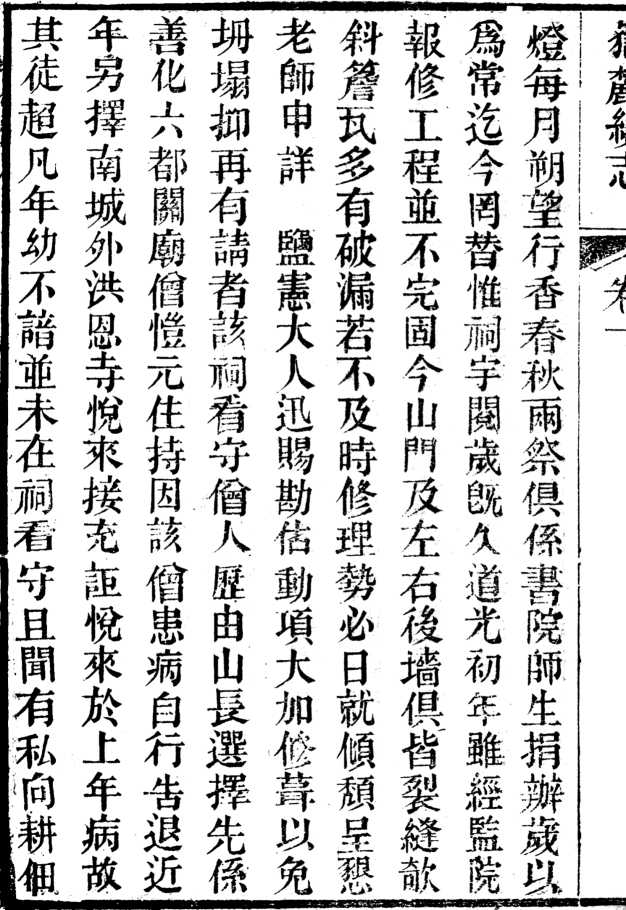 嶽麓續志
卷一
燈每月朔望行香春秋兩祭俱係書院師生捐辦歲以
爲常迄今罔替惟祠宇閱歲旣久道光初年雖經監院
報修工程並不完固今山門及左右後墻俱皆裂縫欹
斜簷瓦多有破漏若不及時修理勢必日就傾頹呈懇
老師申詳　鹽憲大人迅賜勘估動項大加修葺以免
坍塌抑再有請者該祠看守僧人歷由山長選擇先係
善化六都關廟僧愷元住持因該僧患病自行告退近
年另擇南城外洪恩寺悅來接充詎悅來於上年病故
其徒超凡年幼不諳並未在祠看守且聞有私向耕佃